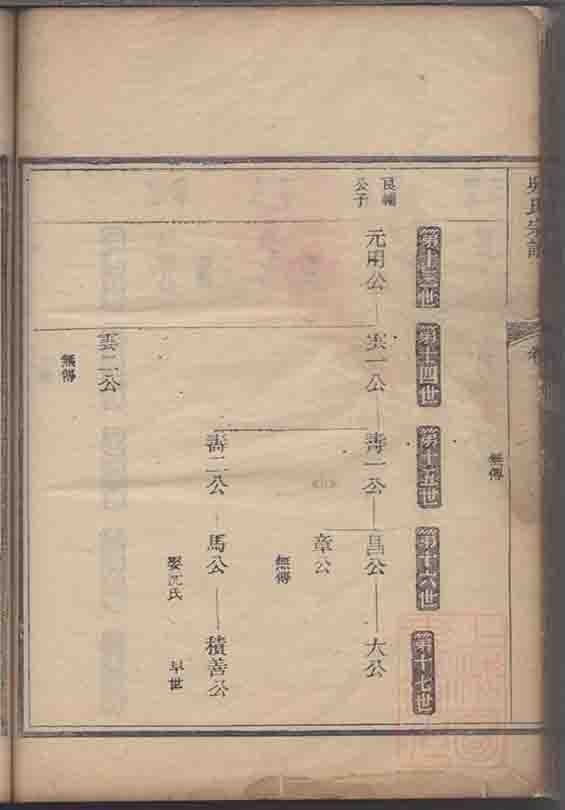 吳氏宗譜
卷
無傳
第十三世
第十四世
第十五世
第十六世
第十七世
良輔
公子
元用公
雲一公
壽一公
昌公
大公
章公
無傳
壽二公
馬公
積善公
娶沈氏
早世
雲二公
無傳